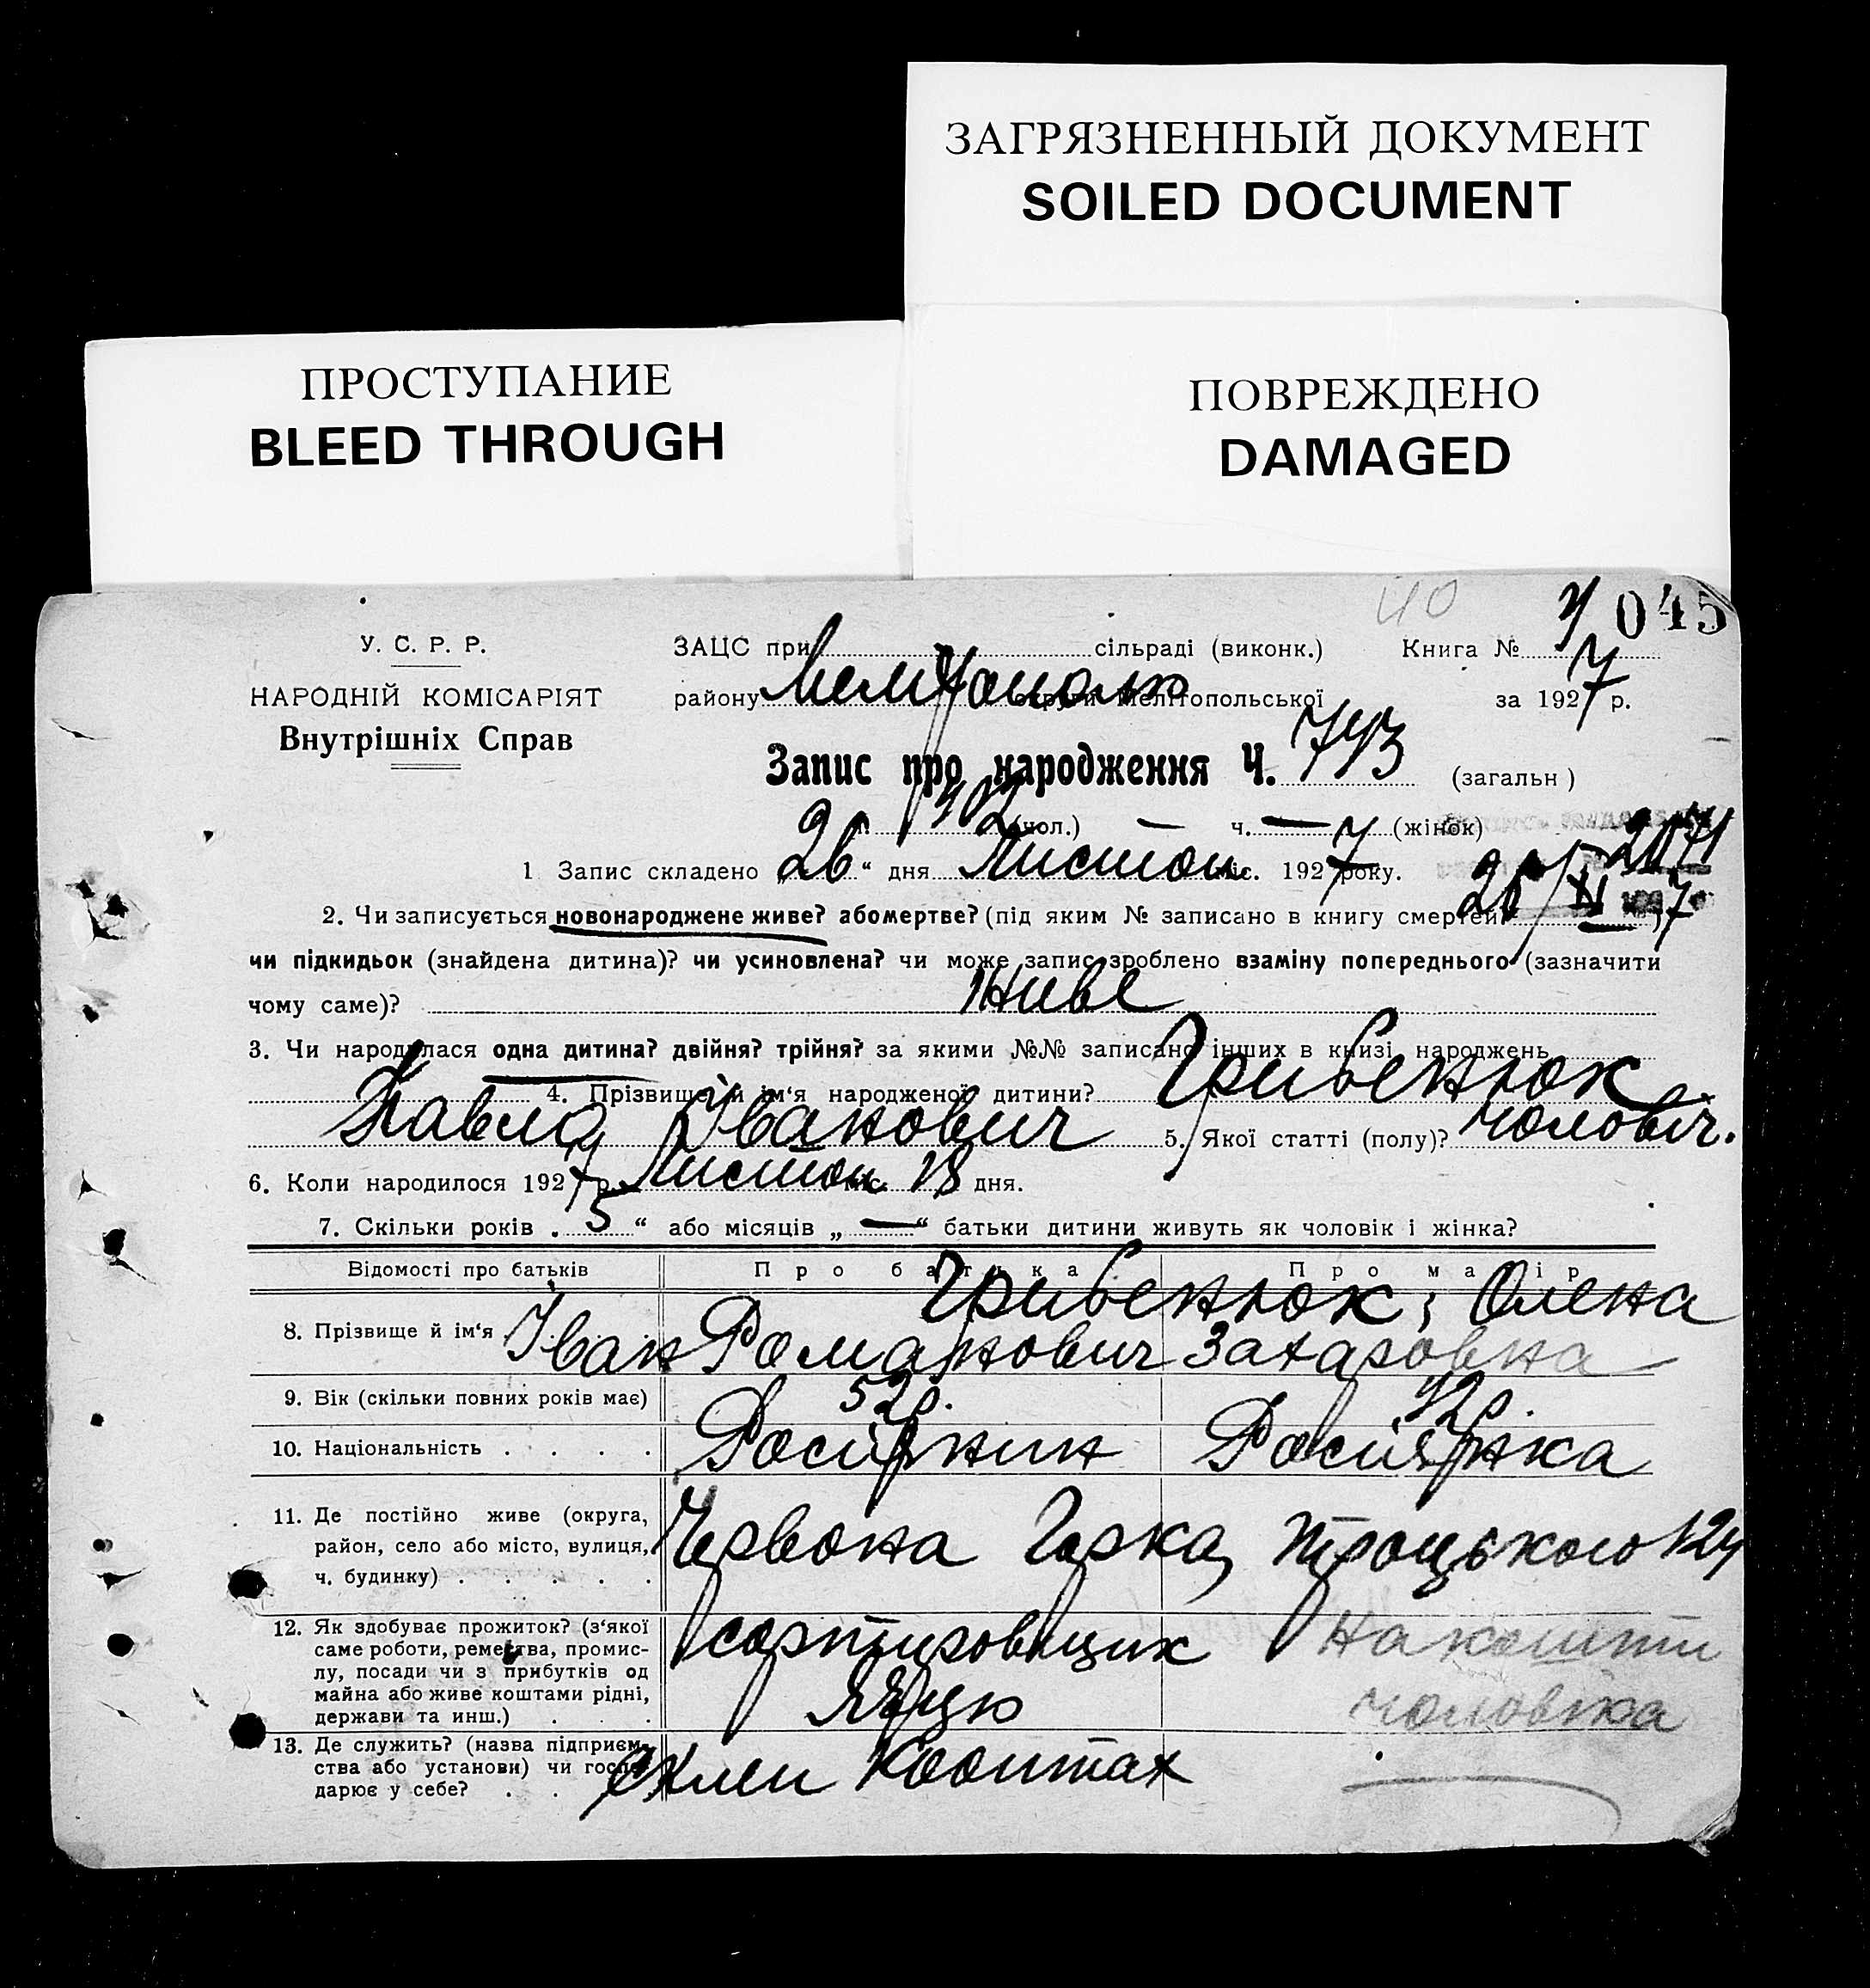 ЗАГРЯЗНЕННЫЙ ДОКУМЕНТ
SOILED DOCUMENT
ПРОСТУПАНИЕ
BLEED THROUGH
ПОВРЕЖДЕНО
DAMAGED
40
045
У. С. Р. Р.
ЗАЦС при сільраді (виконк.) Книга №
НАРОДНІЙ КОМІСАРІЯТ
району округи Мелітопольської за 1927 р.
Внутрішніх Справ
Запис про народження Ч. 743 (загальн)
402 (чол.) — ч. — (жінок)
1 Запис складено „26“ дня Листоп міс. 1927 року.
2. Чи записується новонароджене живе? або мертве? (під яким № записано в книгу смертей
чи підкидьок (знайдена дитина)? чи усиновлена? чи може запис зроблено взаміну попереднього (зазначити
чому саме)? живе
3. Чи народилася одна дитина? двійня? трійня? за якими №№ записано інших в книзі народжень
4. Прізвище й ім‘я народженої дитини? Грибенюк
Павло Іванович 5. Якої статті (полу)? чоловіч.
6. Коли народилося 1927 р. Листоп міс. 18 дня.
7. Скільки років „5“ або місяців „—“ батьки дитини живуть як чоловік і жінка?
Відомості про батьків Про батька Про матір
Грибенюк; Олена
8. Прізвище й ім‘я Іван Романович Захаровна
9. Вік (скільки повних років має) 52р. 42р.
10. Національність Росіянин Росіянка
11. Де постійно живе (округа,
район, село або місто, вулиця, Червона Горка, Троцького 124
ч. будинку)
12. Як здобуває прожиток? (з‘якої
саме роботи, ремества, промис- сортировщик На кошти
лу, посади чи з прибутків од
майна або живе коштами рідні, яєць чоловіка
держави та инш.)
13. Де служить? (назва підприєм-
ства або установи) чи госпо-
дарює у себе?